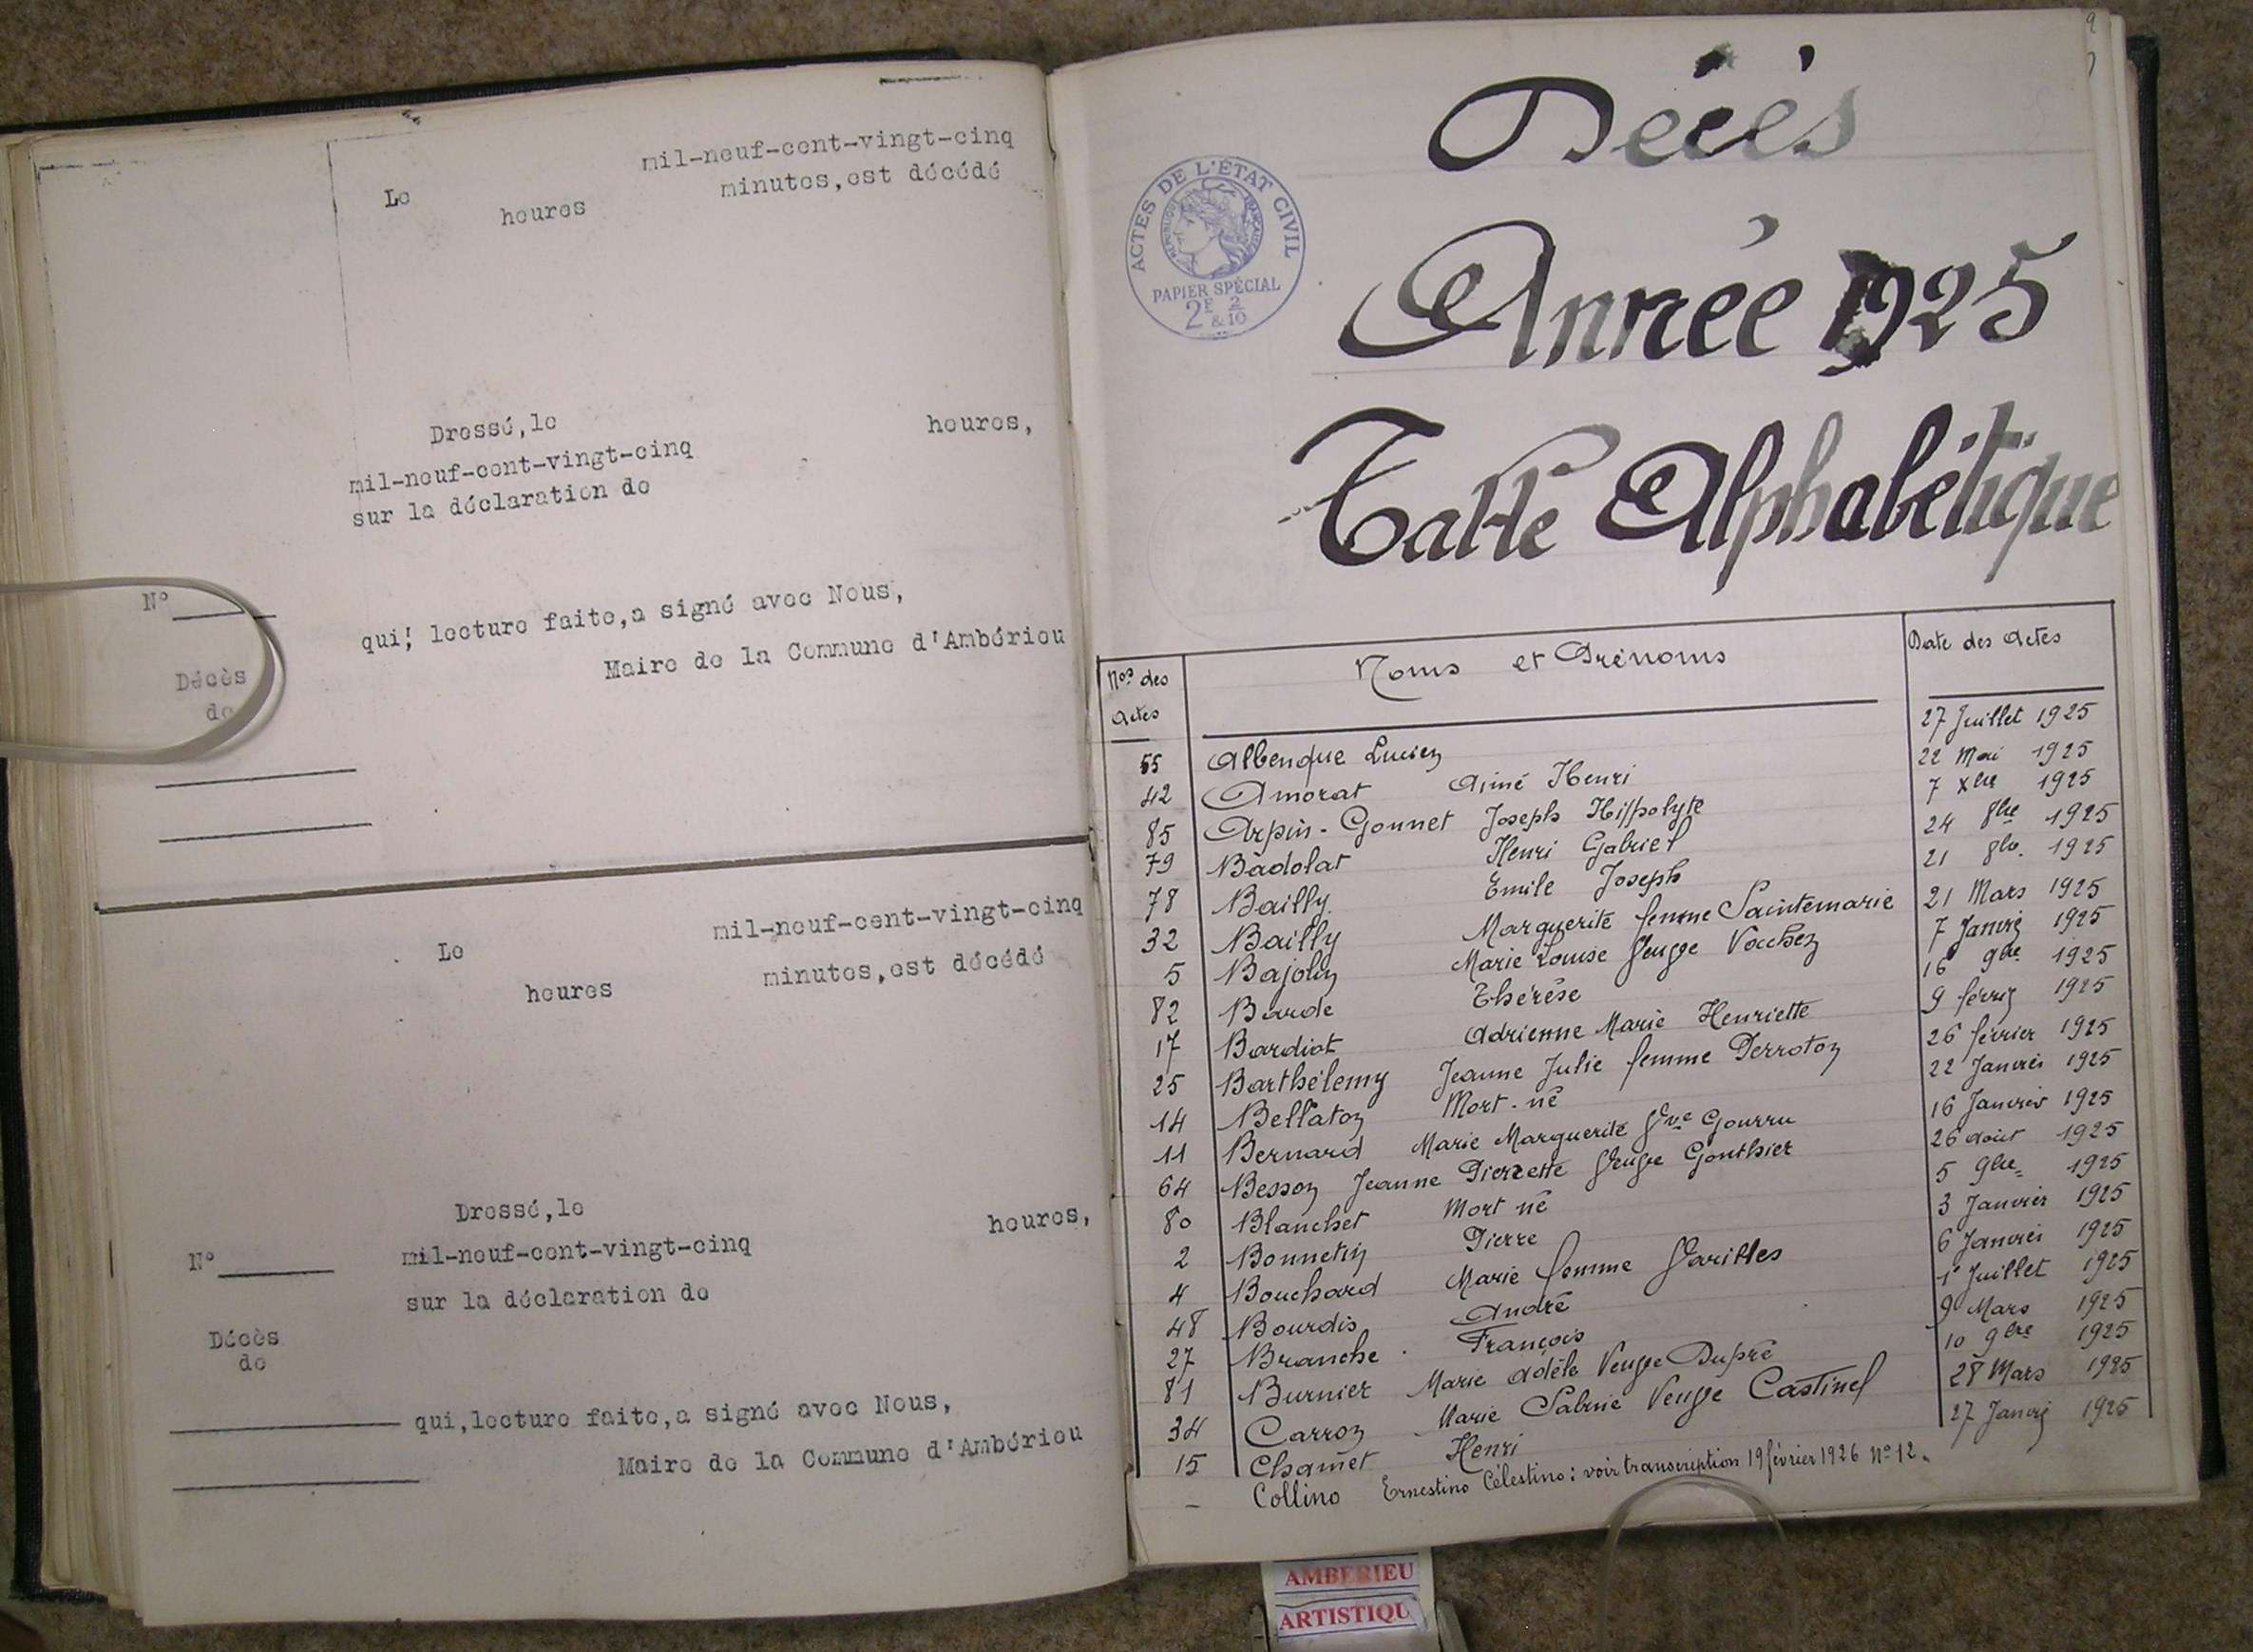 Le mil-neuf-cent-vingt-cinq
heures minutes,est décédé
Dressé,le heures,
mil-neuf-cent-vingt-cinq
sur la déclaration de
N°
qui, lecture faite,a signé avec Nous,
Maire de la Commune d'Ambérieu
Décès
de
Le mil-neuf-cent-vingt-cinq
heures minutes,est décédé
Dressé,le heures,
N°
mil-neuf-cent-vingt-cinq
sur la déclaration de
Décès
de
qui,lecture faite,a signé avec Nous,
Maire de la Commune d'Ambérieu
Décès
ACTES DE L'ÉTAT CIVIL
RÉPUBLIQUE FRANÇAISE
PAPIER SPÉCIAL
2F & 2/10
Année 1925
Table Alphabétique
Nos des Actes Noms et Prénoms Date des Actes
55 Albenque Lucien 27 Juillet 1925
42 Amorat Aimé Henri 22 Mai 1925
85 Arpin-Gonnet Joseph Hippolyte 7 Xbre 1925
79 Badolat Henri Gabriel 24 8bre 1925
78 Bailly Emile Joseph 21 8bre 1925
32 Bailly Marguerite femme Saintemarie 21 Mars 1925
5 Bajolin Marie Louise Veuve Vochez 7 Janvier 1925
82 Barde Thérèse 16 9bre 1925
17 Bardiot Adrienne Marie Henriette 9 février 1925
25 Barthélemy Jeanne Julie femme Derroton 26 février 1925
14 Bellaton Mort-né 22 Janvier 1925
11 Bernard Marie Marguerite Vve Gourru 16 Janvier 1925
64 Besson Jeanne Pierrette Veuve Gonthier 26 août 1925
80 Blanchet Mort né 5 9bre 1925
2 Bonnetin Pierre 3 Janvier 1925
4 Bouchard Marie femme Varilles 6 Janvier 1925
48 Bourdis André 1er Juillet 1925
27 Branche François 9 Mars 1925
81 Burnier Marie Adèle Veuve Dupré 10 9bre 1925
34 Carron Marie Sabine Veuve Castinel 28 Mars 1925
15 Chamet Henri 27 Janvier 1925
– Collino Ernestino Célestino: voir transcription 19 février 1926 N° 12.
AMBERIEU
ARTISTIQU